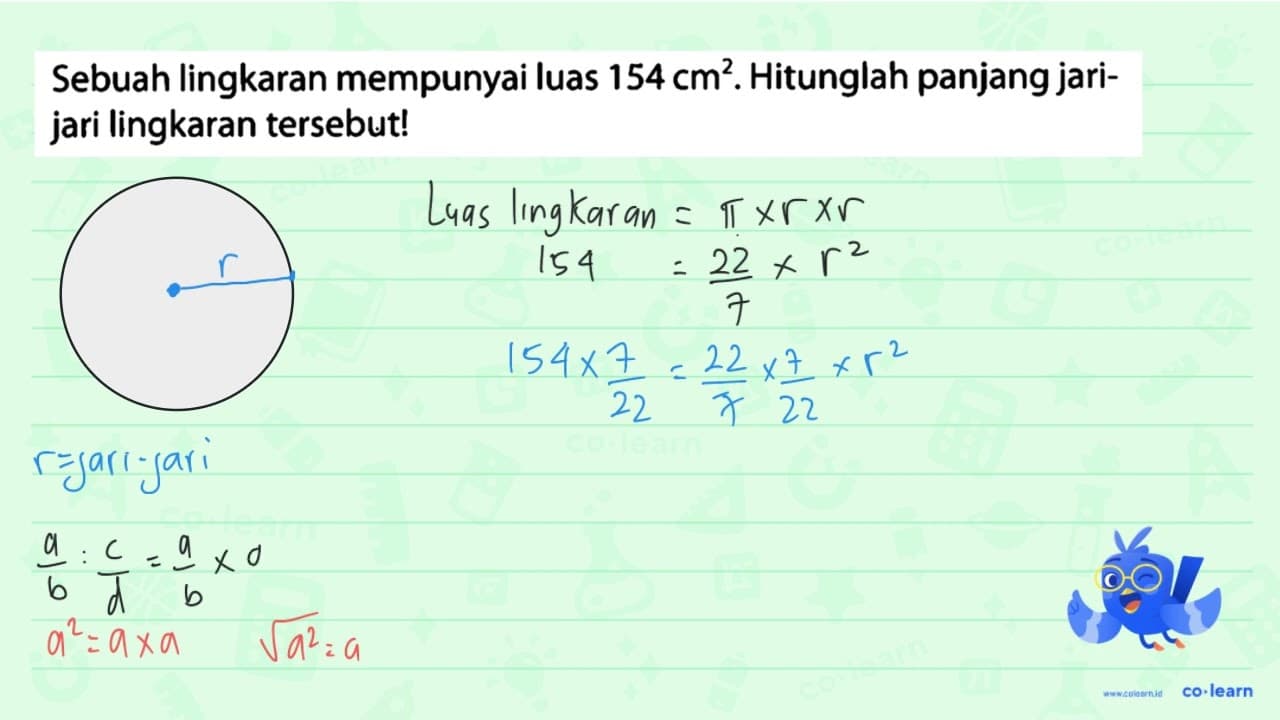 Sebuah lingkaran mempunyai luas 154 cm². Hitunglah panjang jari-
jari lingkaran tersebut!
r
Luas lingkaran = π × r × r
154 = 22/7 × r²
154 × 7/22 = 22/7 × 7/22 × r²
r = jari-jari
a/b : c/d = a/b × d
a² = a × a √a² = a
www.colearn.id co·learn